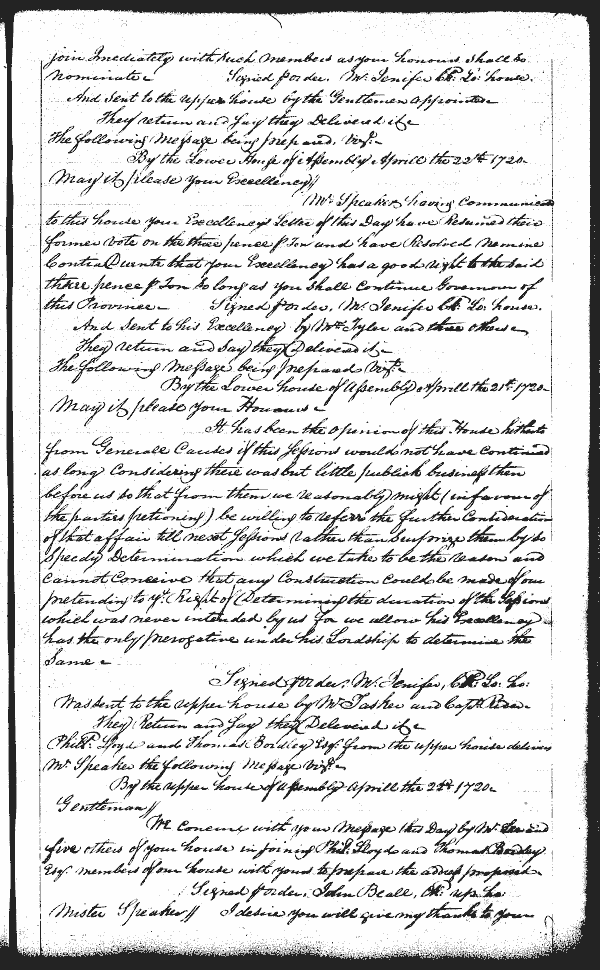 join Imediately with such members as your honours shall be
nominate Signed p order. M. Jenifer Clk. Lo: house.
And sent to the upper house by the Gentlemen appointed
They return and say they Delivered it
The following Message being prepared. Vizt.
By the Lower House of Assembly Aprill the 22th 1720
May it please your Excellency//
Mr. Speaker having Communicated
to this house your Excellencys Letter of this Day have Resumed their
former vote on the three pence p Ton and have Resolved Nemine
Contradicente that your Excellency has a good right to the said
three pence p Ton so long as you shall continue Governour of
this Province Signed p order. M. Jenifer Clk. Lo: house.
And sent to his Excellency by Mr. Tyler and three others
They return and say they Delivered it
The following Message being prepared Vizt.
By the Lower house of Assembly Aprill the 21th 1720
May it please your Honours
It has been the opinion of this House hitherto
from Generall Causes if this Sessions would not have Continued
as long Considering there was but little publick business then
before us so that from them we reasonably might (in favour of
the parties petioning) be willing to referr the further Consideration
of that affair till next Sessions rather than Surprize them by so
Speedy Determination which we take to be the reason and
cannot Conceive that any Construction could be made of our
pretending to yt. Right of Determining the duration of the Sessions
which was never intended by us for we allow his Excellency
has the only prerogative under his Lordship to determine the
Same
Signed p order. M. Jenifer, Clk. Lo: ho:
Was sent to the upper house by Mr. Tasker and Capt.
They Return and Say they Delivered it
Phill. Lloyd and Thomas Bordley Esqr. from the upper house delivers
Mr. Speaker the following Message Vizt.
By the upper house of Assembly Aprill the 22d 1720
Gentleman//
We concur with your Message this Day by Mr. and
five others of your house in joining Phil. Lloyd and Thomas Bordley
Esqr. members of our house with yours to prepare the address proposed
Signed p order, John Beall, Clk. up. ho
Mister Speaker// I desire you will give my thanks to your